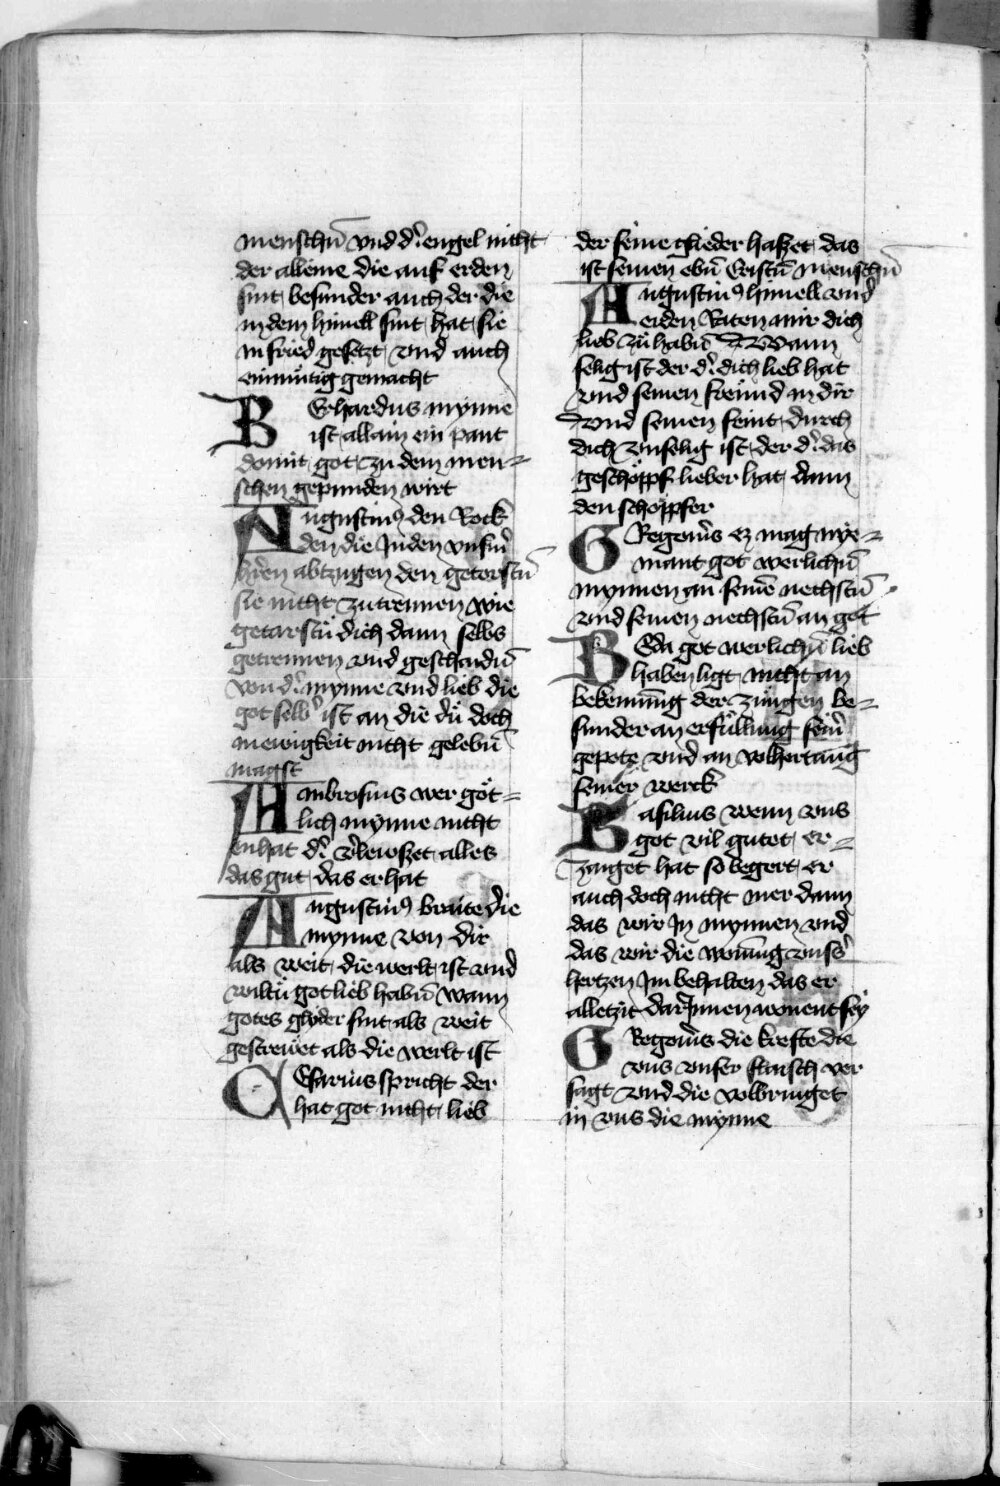 menschn̄ vnd d᷑ engel nicht
der alleine die auf erden
sint besunder auch der die
in dem himell sint hat sie
in fried gesetzt vnd auch
einmutig gemacht
BErhardus mynne
ist allain ein pant
domit got zu dem men=
schen gepunden wirt
AUgustin9 den Rock
den die Juden vnsm̄
hr̄en abtzugen den getorstn̄
sie nicht zutrennen wie
getarstu dich dann selbs
getrennen vnd geschaidn̄
von d᷑ mynne vnd lieb die
got selb᷑ ist an die du doch
in ewigkeit nicht gelebn̄
magst
Ambrosius wer göt=
lich mynne nicht
enhat d᷑ v᷑lewszet alles
das gut das er hat
Augustin9 braite die
mynne von dir
als weit die werlt ist vnd
wiltu got lieb habn̄ wann
gotes glyder sint als weit
gestrewet als die werlt ist
CEsarius spricht der
hat got nicht lieb
der seine glieder haszet das
ist seinen ebn̄ Cristn̄ menschn̄
Augustin9 himell vnd
erden Raten mir dich
lieb zu habn̄ Wann
selig ist der d᷑ dich lieb hat
vnd seinen freund in dir
vnd seinen feint durch
dich vnselig ist der d᷑ das
geschöpf lieber hat dann
den schöpfer
GRegori9 ez mag nye=
mant got werlichn̄
mynnen an seinē nechstn̄
vnd seinen nechstn̄ an got
BEda got werlichn̄ lieb
haben ligt nicht an
bekennūg der zungen be=
sunder an erfullung sein᷑
gepote vnd an volhertūg
seiner werck
Basilius wenn vns
got vil gutet er=
zaiget hat so begert er
auch doch nicht mer dann
das wir In mynnen vnd
das wir die wonūg vnss᷑
hertzen Im behalten das er
alletzit darJnnen wonent sey
GRegori9 die krefte die
vns vnser flaisch ver
sagt vnd die volbringet
in vns die mynne